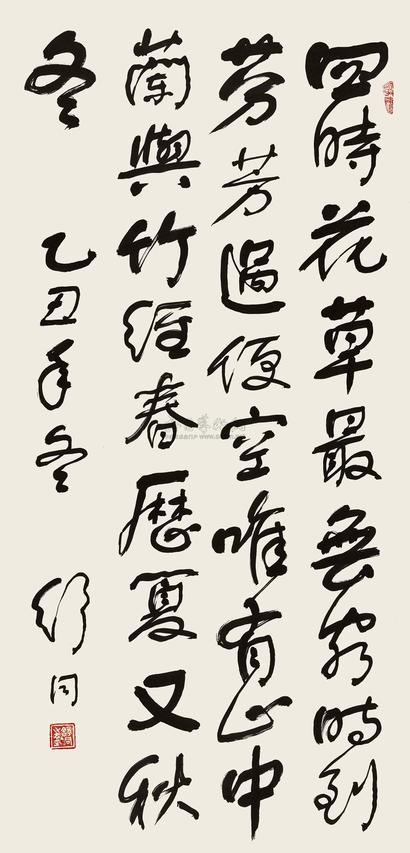 四時花草最無窮時到
芬芳過便空唯有山中
蘭與竹經春歷夏又秋
冬 乙丑年冬 舒同